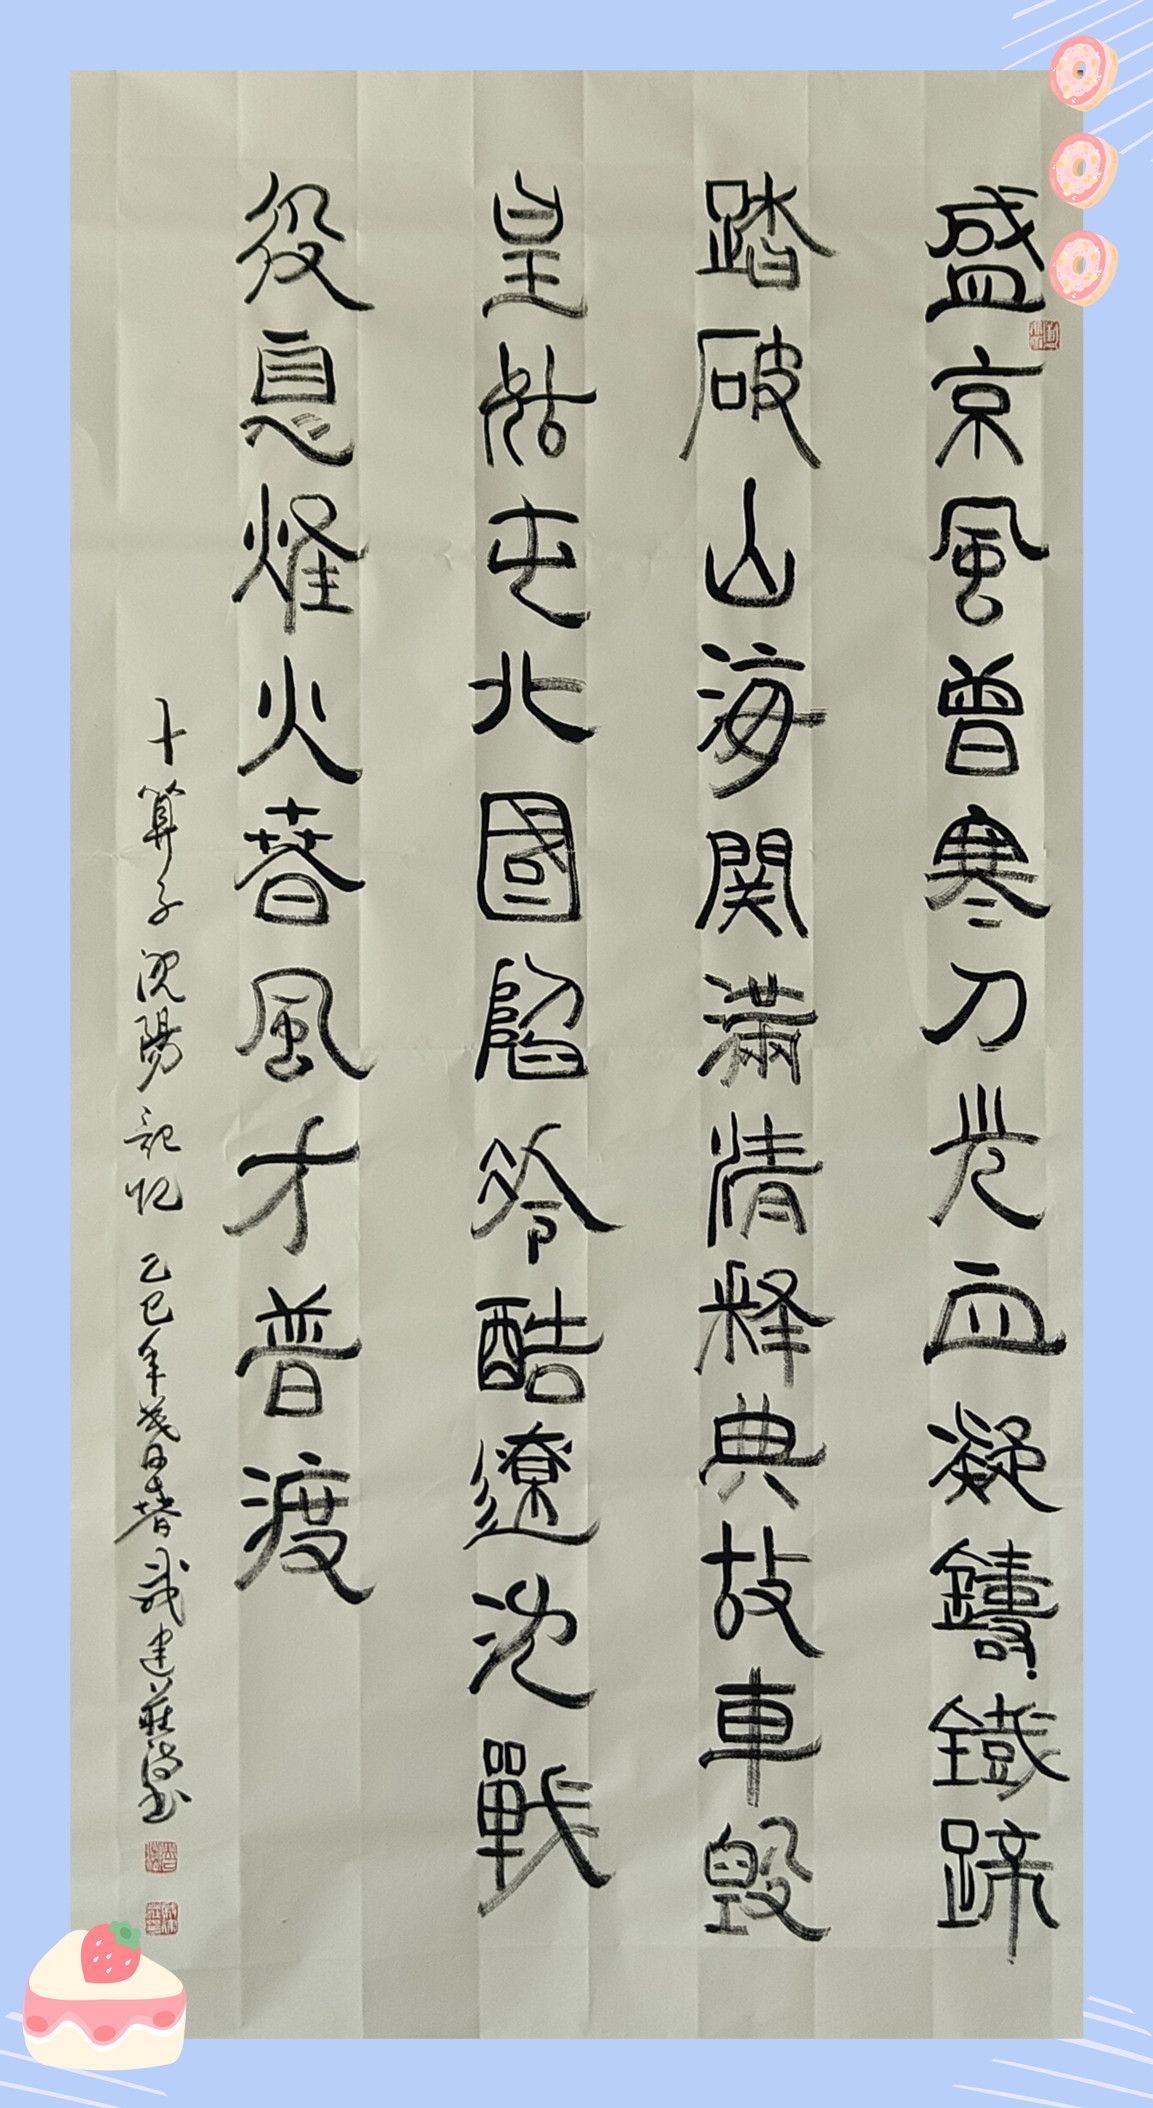 盛京風曾寒刀光血凝鑄鐵蹄
踏破山海関滿清释典故車毁
皇姑屯北國陷冷酷遼沈戰
役息烽火春風才普渡
卜算子 沈陽記忆 乙巳年 日春 建莊